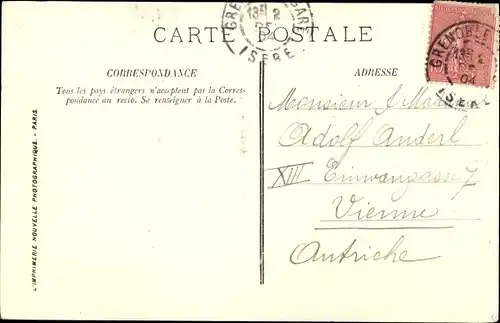 GRENOBLE GARE
13E 2
04
ISERE
CARTE POSTALE
GRENOBLE
13E
04
ISERE
CORRESPONDANCE
Tous les pays étrangers n'acceptent pas la Corres-
pondance au recto. Se renseigner à la Poste.
ADRESSE
Monsieur
Adolf Anderl
XIII Einwanggasse 7
Vienne
Autriche
L'IMPRIMERIE NOUVELLE PHOTOGRAPHIQUE. - PARIS.